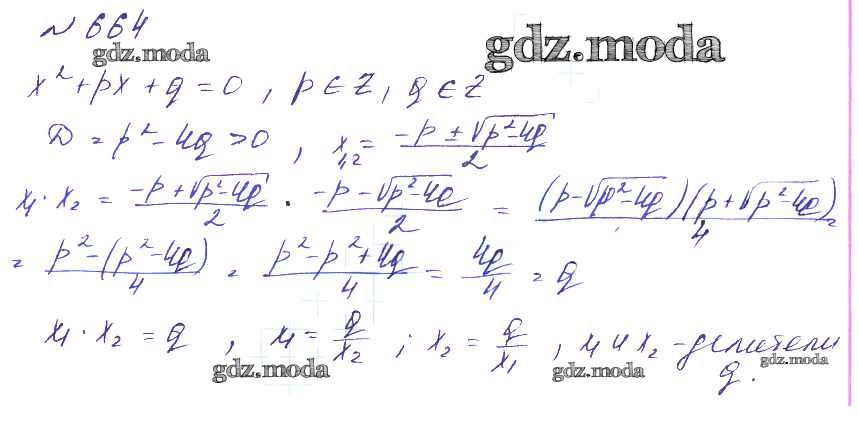 № 664
gdz.moda
gdz.moda
x² + px + q = 0, p ∈ Z, q ∈ Z
D = p² - 4q > 0, x₁,₂ = (-p ± √(p² - 4q))/2
x₁ · x₂ = (-p + √(p² - 4q))/2 · (-p - √(p² - 4q))/2 = (p - √(p² - 4q))(p + √(p² - 4q))/4 =
= (p² - (p² - 4q))/4 = (p² - p² + 4q)/4 = 4q/4 = q
x₁ · x₂ = q, x₁ = q/x₂; x₂ = q/x₁, x₁ и x₂ - делители
q.
gdz.moda
gdz.moda
gdz.moda